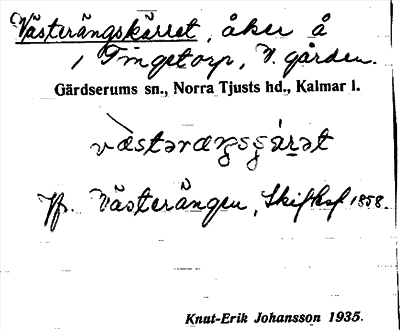 Västerängskärret, åker å
1 Tingstorp, V. gården.
Gärdserums sn., Norra Tjusts hd., Kalmar l.
Jfr. Västerängen, Skifteskar 1858.
Knut-Erik Johansson 1935.